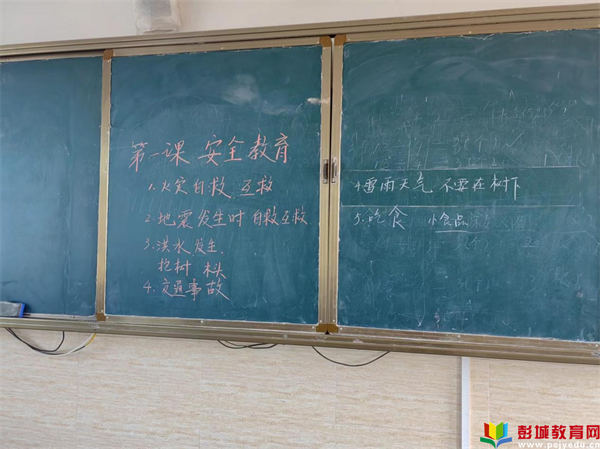 第一课 安全教育
1.火灾自救、互救
2.地震发生时 自救互救
3.洪水发生、
抱树 木头
4.交通事故
4.雷雨天气 不要在树下
5.吃食 小食品
彭城教育网
www.pcjyedu.cn